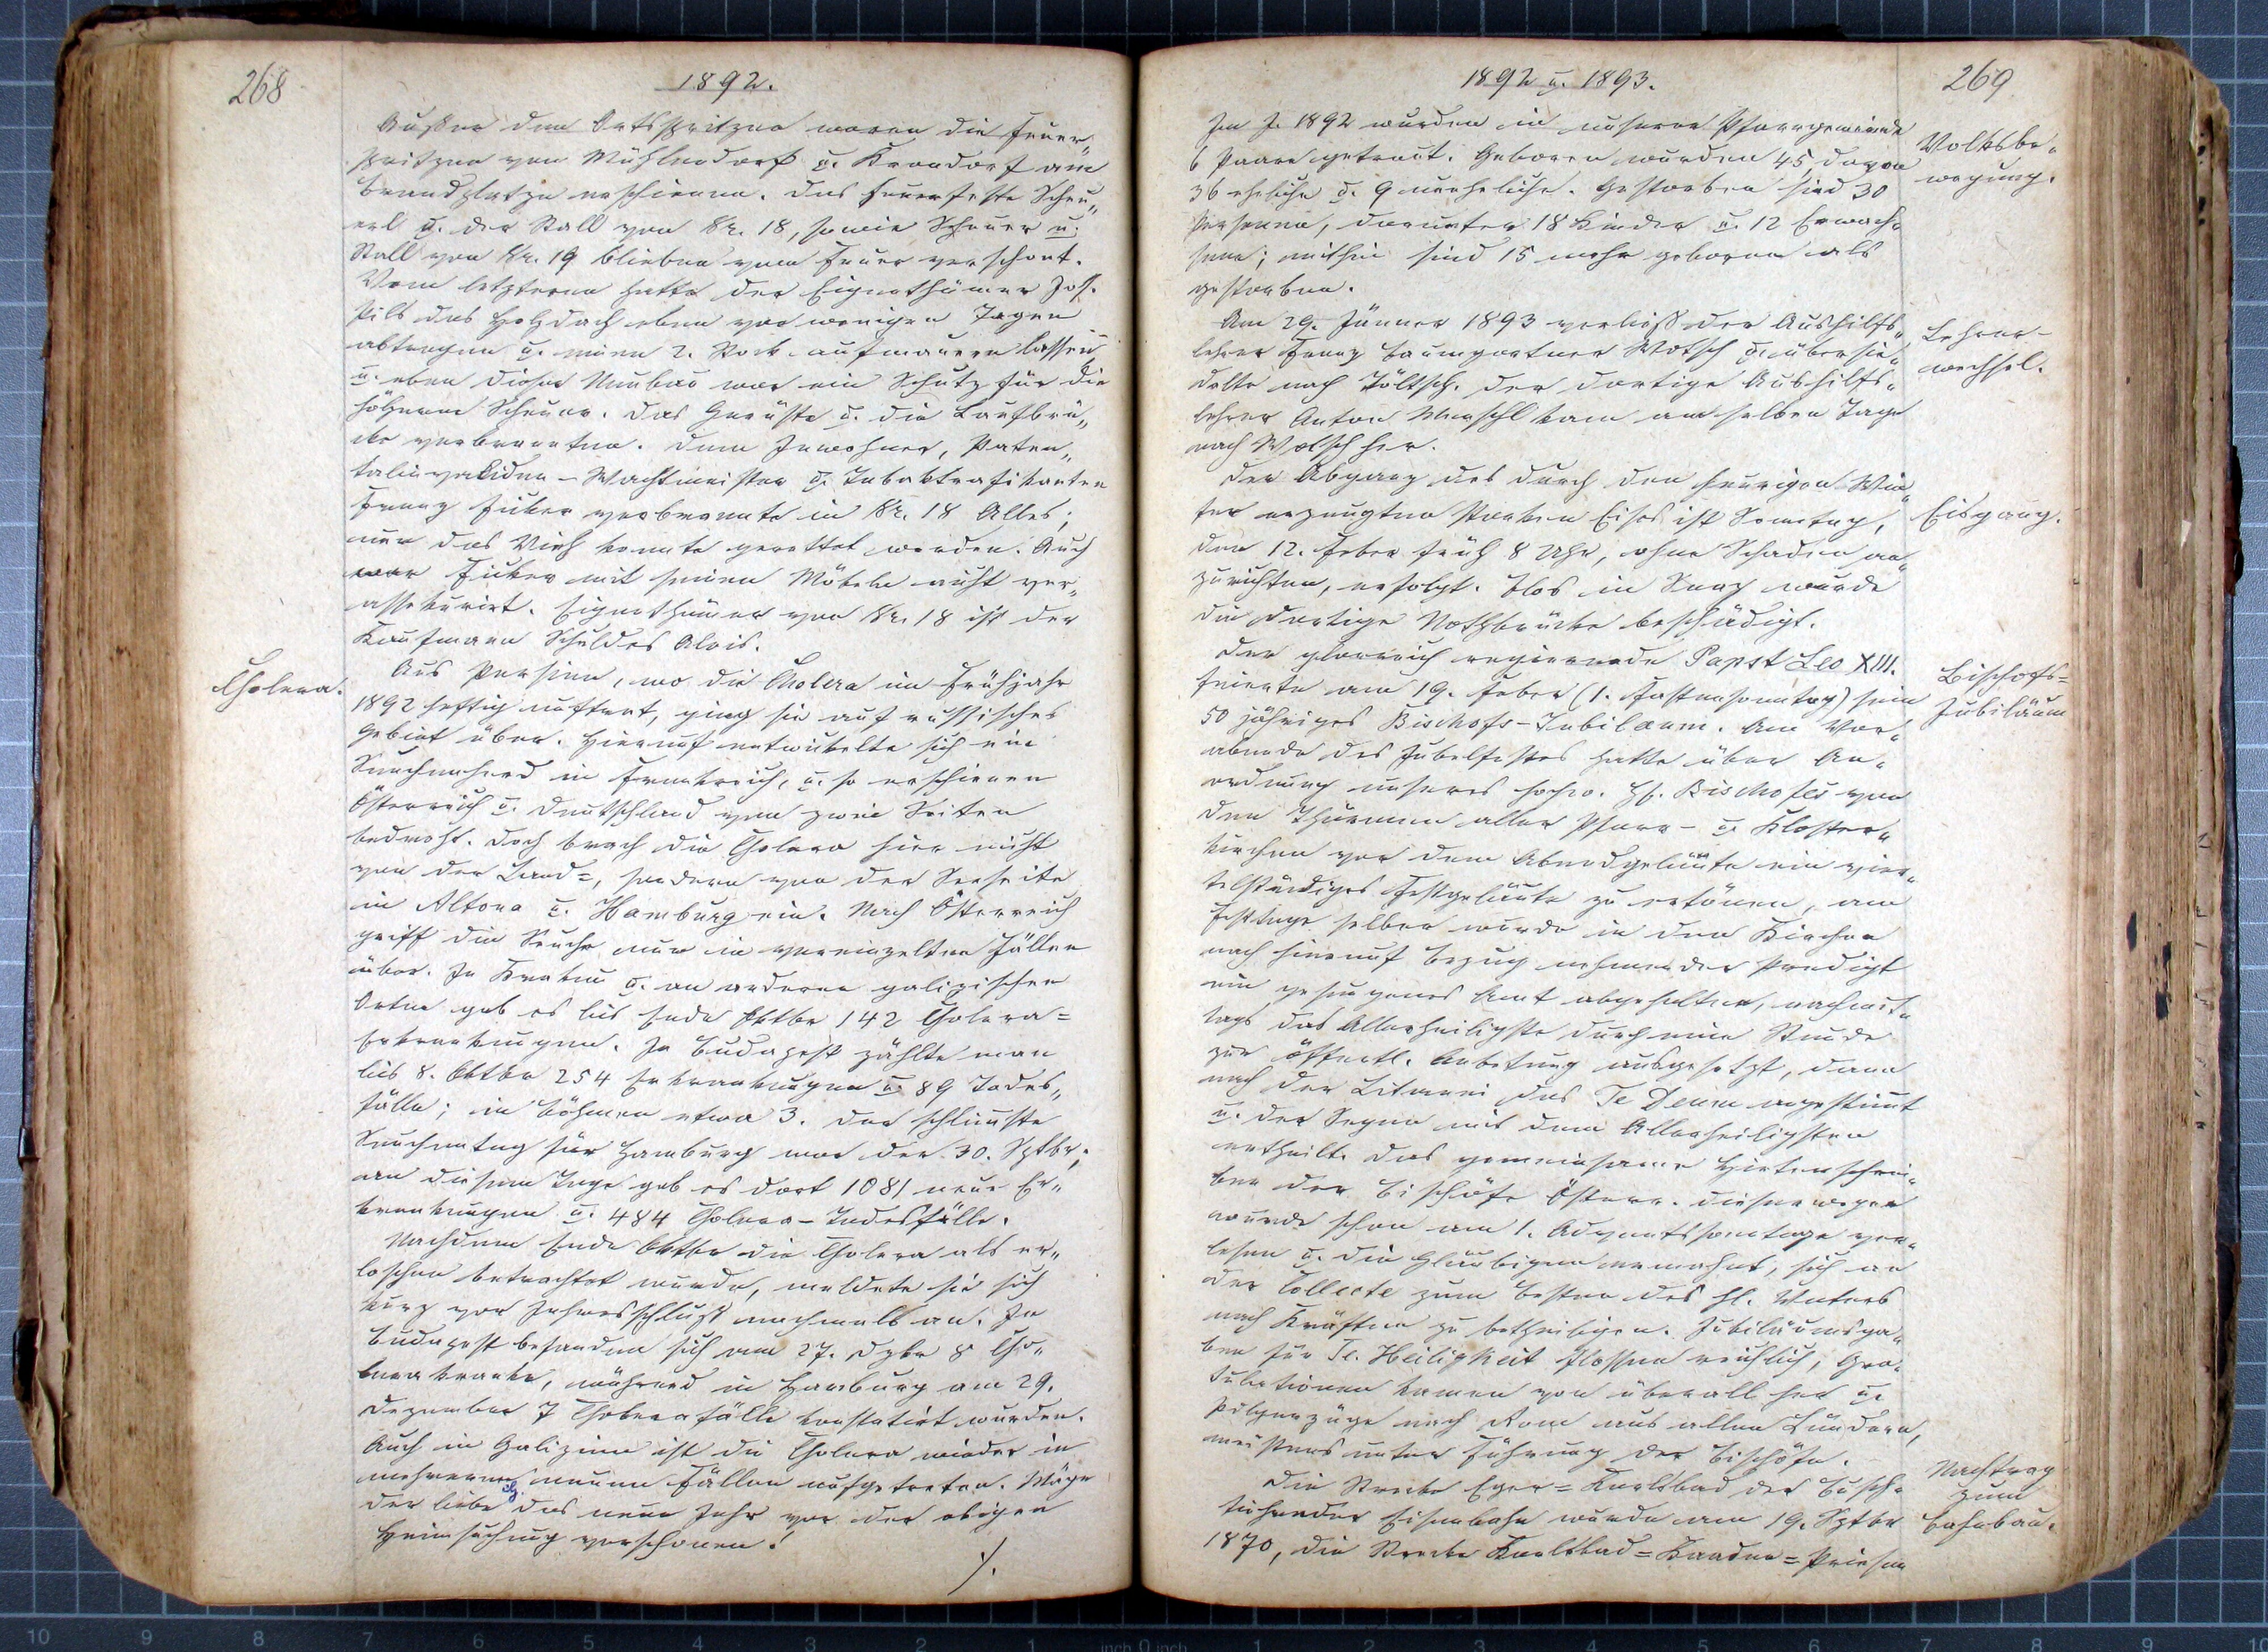 268
1892.
Außer den Ortsspritzen waren die Feuer„
spritzen von Mühlendorf u. Krondorf am
Brandplatze erschienen. Das feuerfeste Scheu„
erl u. der Stall von Nr. 18, sowie Scheuer u.
Stall von Nr. 19 blieben vom Feuer verschont.
Vom letzteren hatte der Eigenthümer Jos.
Pilz das Holzdach eben vor wenigen Tagen
abtragen u. einen 2. Stock aufmauern lassen
u. eben dieser Neubau war ein Schutz für die
hölzerne Scheuer. Das Gerüste u. die Laufbrü„
cke verbrannten. Dem Inwohner, Paten„
talinvaliden-Wachtmeister u. Tabaktrafikanten
Franz Ficker verbrannte in Nr. 18 Alles;
nur das Vieh konnte gerettet werden. Auch
war Ficker mit seinen Möbeln nicht ver„
assekurirt. Eigenthümer von Nr. 18 ist der
Kaufmann Schuldes Alois.
Cholera.
Aus Persien, wo die Cholera im Frühjahr
1892 heftig auftrat, ging sie auf russisches
Gebiet über. Hierauf entwickelte sich ein
Seuchenherd in Frankreich, u. so erschienen
Österreich u. Deutschland von zwei Seiten
bedroht. Doch brach die Cholera hier nicht
von der Land=, sondern von der Seeseite
in Altona u. Hamburg ein. Nach Österreich
griff die Seuche nur in vereinzelten Fällen
über. In Krakau u. an anderen galizischen
Orten gab es bis Ende Oktbr 142 Cholera=
Erkrankungen. In Budapest zählte man
bis 8. Oktbr 254 Erkrankungen u. 89 Todes„
fälle; in Böhmen etwa 3. Der schlimmste
Seuchentag für Hamburg war der 30. Sptbr;
an diesem Tage gab es dort 1081 neue Er„
krankungen u. 484 Cholera-Todesfälle.
Nachdem Ende Oktbr die Cholera als er„
loschen betrachtet wurde, meldete sie sich
kurz vor Jahresschluß nochmals an. In
Budapest befanden sich am 27. Dzbr 8 Cho„
lerakranke, während in Hamburg am 29.
Dezember 7 Cholerafälle konstatirt wurden.
Auch in Galizien ist die Cholera wieder in
mehreren neuen Fällen aufgetreten. Möge
der liebe das neue Jahr vor der obigen
Heimsuchung verschonen!
./.
1892 u. 1893.
269
Im J. 1892 wurden in unserer Pfarrgemeinde
6 Paare getraut. Geboren wurden 45, davon
36 eheliche u. 9 uneheliche. Gestorben sind 30
Personen, darunter 18 Kinder u. 12 Erwach„
sene; mithin sind 15 mehr geboren als
gestorben.
Volksbe„
wegung.
Am 29. Jänner 1893 verließ der Aushilfs„
lehrer Franz Baumgartner Wotsch u. übersie„
delte nach Töltsch. Der dortige Aushilfs„
lehrer Anton kam am selben Tage
nach Wotsch her.
Lehrer-
wechsel.
Der Abgang des durch den heurigen Win„
ter erzeugten starken Eises ist Sonntag,
den 12. Feber früh 8 Uhr, ohne Schaden an„
zurichten, erfolgt. Blos in wurde
die dortige Nothbrücke beschädigt.
Eisgang.
Der glorreich regierende Papst Leo XIII.
feierte am 19. Feber (1. Fastensonntag) sein
50 jähriges Bischofs-Jubiläum. Am Vor„
abende des Jubelfestes hatte über An„
ordnung unseres hochw. H. Bischofes von
den Thürmen aller Pfarr- u. Kloster„
kirchen vor dem Abendgeläute ein vier„
telstündiges Festgeläute zu ertönen, am
Festtage selber wurde in den Kirchen
nach hierauf Bezug nehmender Predigt
ein gesungenes Amt abgehalten, nachmit„
tags das Allerheiligste durch eine Stunde
zur öffentl. Anbetung ausgesetzt, dann
nach der Litanei das Te Deum angestimmt
u. der Segen mit dem Allerheiligsten
ertheilt. Das gemeinsame Hirtenschrei„
ben der Bischöfe Österr. dieserwegen
wurde schon am 1. Adventssonntage ver„
lesen u. die Gläubigen ermahnt, sich an
der Collecte zum Besten des hl. Vaters
nach Kräften zu betheiligen. Jubiläumsga„
ben für Se. Heiligkeit flossen reichlich, Gra„
tulationen kamen von überall her u.
Pilgerzüge nach Rom aus allen Ländern,
meistens unter Führung der Bischöfe.
Bischofs=
Jubiläum
Die Strecke Eger=Karlsbad der Busch„
tiehrader Eisenbahn wurde am 19. Sptbr
1870, die Strecke Karlsbad=Kaaden=Priesen
Nachtrag
zum
Bahnbau.